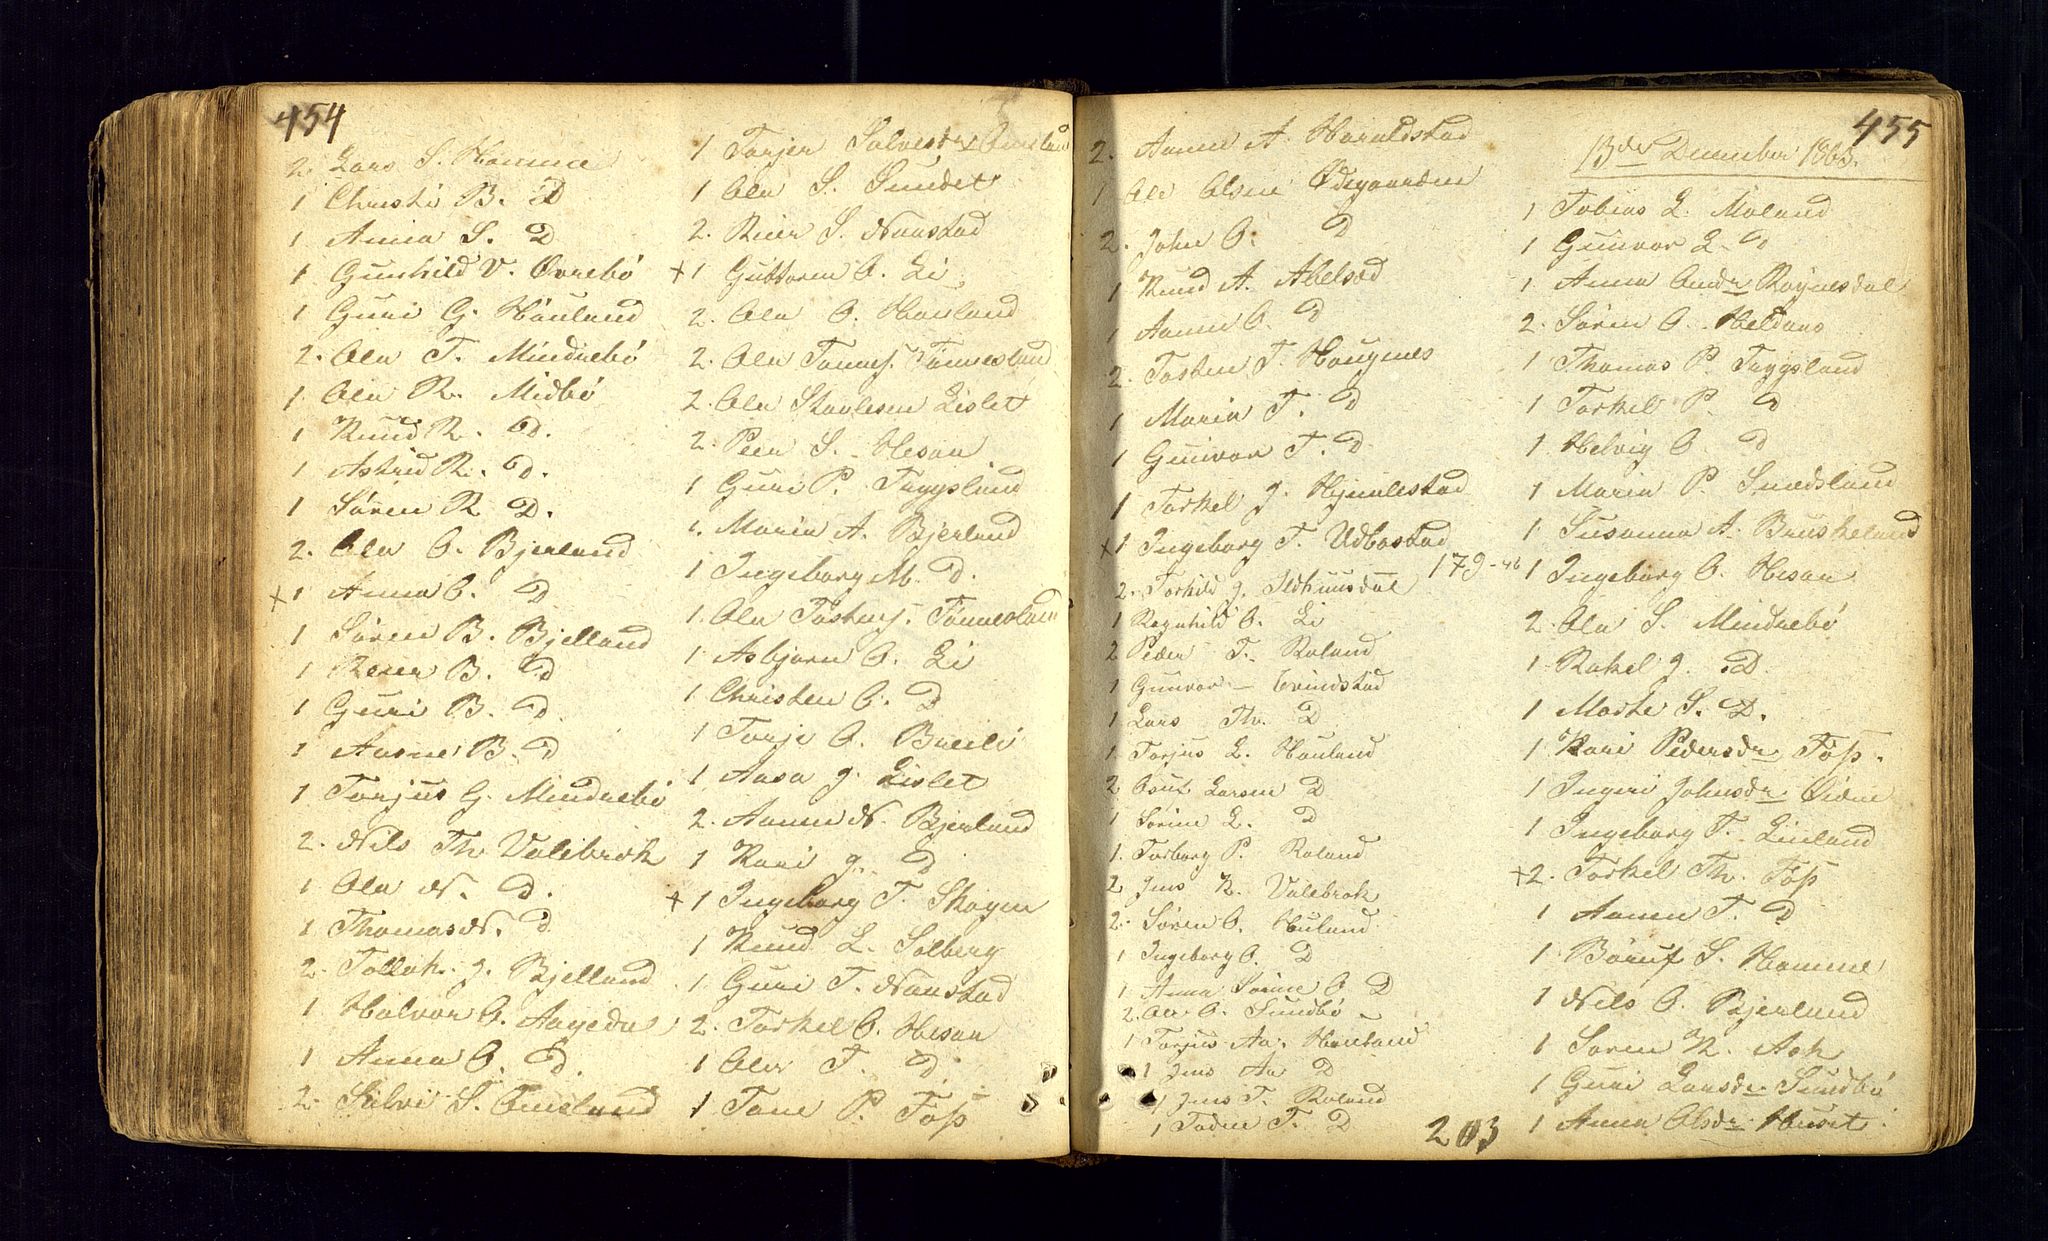 454
2. Lars S. Homme
1 Christi B. D
1 Anna S. D
1 Gunhild V. Øvrebø
1 Guri G. Hauland
2. Ola T. Mindrebø
1 Ola R. Midbø
1 Knud R. D.
1 Astrid R. D.
1 Søren R D.
2. Ola O. Bjerland
x 1 Anna O. D
1 Søren B. Bjelland
1 Reier B. D
1 Guri B. D
1 Aasne B. D
1 Torjus G. Mindrebø
2. Nils Th Valebrok
1 Ola N. D.
1 Thomas N. D
2. Tollak g. Bjelland
1 Halvor O. Aagedal
1 Anna O. D.
2. Salvi S. Omsland
1 Torjer Salvesdr Omsland
1 Ola S. Sundet
2. Reier S. Naustad
x 1 Guttorm O. Li
2. Ola O. Hauland
2. Ola Tønnes. Tønnesland
2. Ola Stavlesen Lislet
2. Peer S. Hesaa
1 Guri P. Tryggsland
1. Maria A. Bjerland
1 Ingeborg M. D.
1. Ola Tostens. Tønnesland
1 Asbjørn O. Li
1 Christen O. D
1 Torje O. Breili
1 Aasa g. Lislet
2. Aanen N. Bjerland
1 Kari g. D
x 1 Ingeborg T. Skagen
1 Knud L. Solberg
1 Guri T. Naustad
2. Torkel O. Hesaa
1 Ola T. D
1 Tone P. Foss
2. Aanen A. Haraldstad
1 Ole Olsen Ødegaarden
2. John O. D
1 Knud A. Abelsæd
1 Aanen O. D
2. Tosten T. Haugnes
1 Maria T. D
1 Gunvor T. D
1 Torkel g. Hjemlestad
x 1 Ingeborg T. Udbostad
2. Torkild g. Ildhuusdal 179-46
1 Ragnhild O. Li
2 Peder T. Roland
1 Gunvor - Evindstad
1 Lars Th. D
1 Torjus L. Hauland
2 Larsen D
1 Sørine L. D
1. Torborg P. Roland
2 Jens K. Valebrok
2. Søren O. Hauland
1 Ingeborg O. D
1 Anna Sørine O D
2. Ole O. Sundbø
1 Torjus Aa. Hauland
1 Jens Aa D
1 Jens T. Roland
1 Todne T. D
203
455
13de December 1863.
1 Tobias L. Moland
1 Gunvor L. D
1 Anna Andr Røynesdal
2. Søren O. Heldaas
1 Thomas P. Tryggsland
1 Torkel P. D
1 Helvig O. D
1 Maria P. Smedsland
1 Susanna A. Bruskeland
1 Ingeborg O. Hesaa
2. Ola S. Mindrebø
1. Rakel g. D
1 Marte S. D.
1 Kari Pedersdr Foss.
1 Ingeri Johnsdr Øidne
1 Ingeborg T. Linland
x 2. Torkel Th. Foss
1 Aanen T. D
1 S. Homme
1 Nils O. Bjerland
1 Søren K. Ask
1 Guri Larsdr Sundbø
1 Anna Olsdr Huset